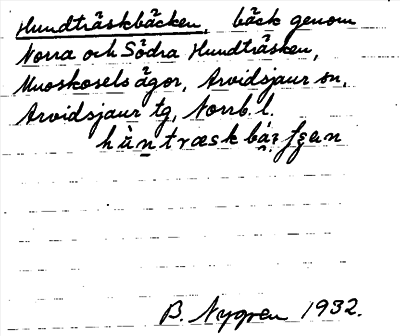 Hundträskbäcken, bäck genom
Norra och Södra Hundträsken,
Muoskosels ägor, Arvidsjaur sn,
Arvidsjaur tg, Norrb. l.
B. Nygren 1932.